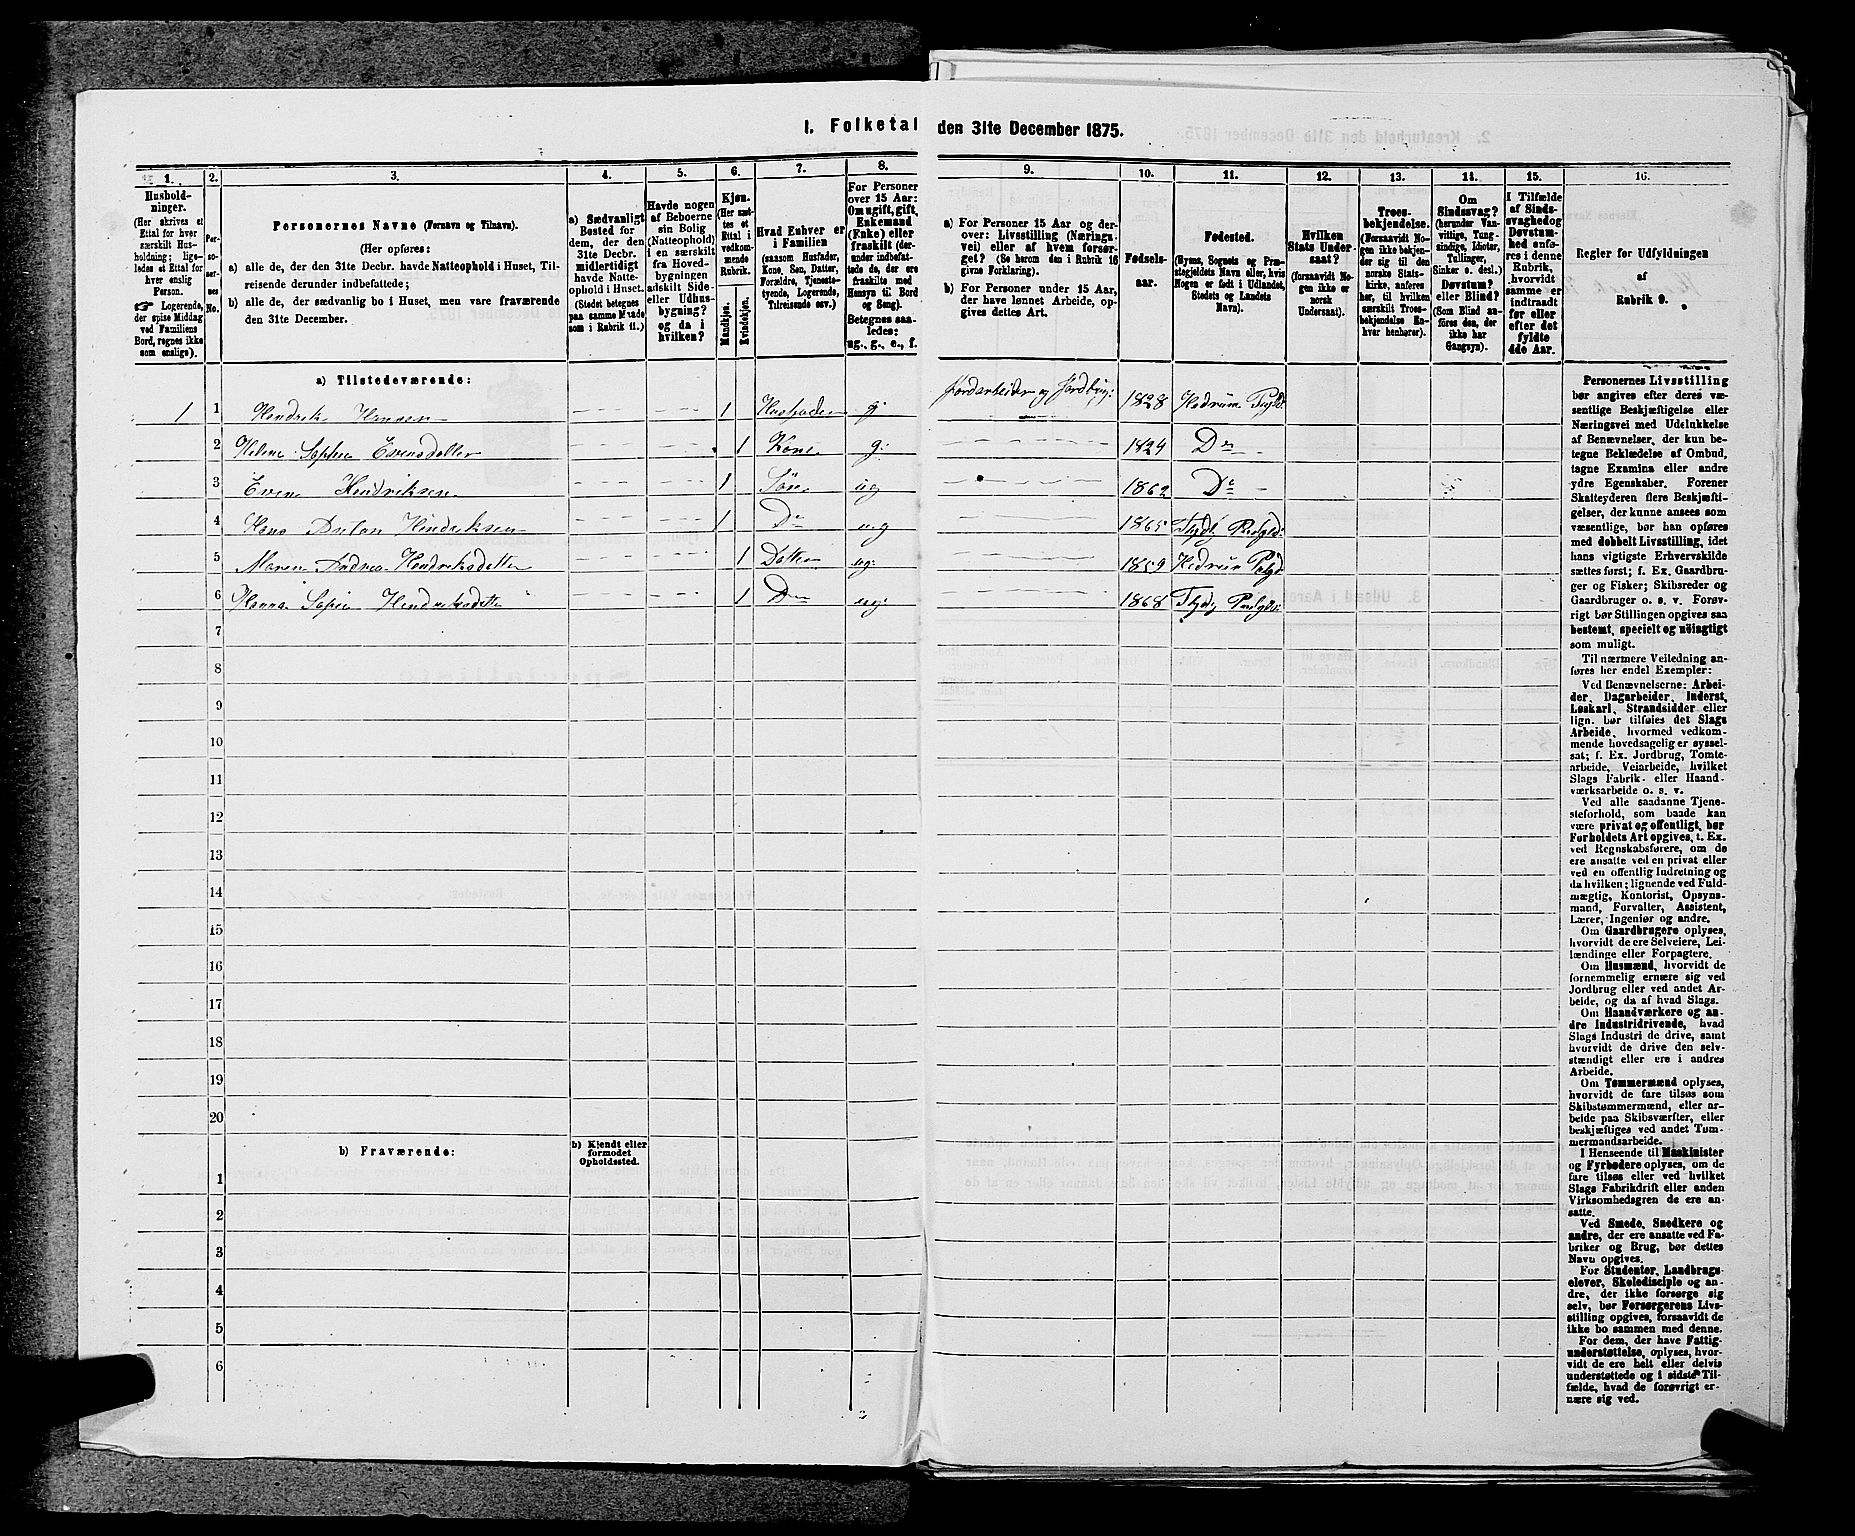 I. Folketal den 31te December 1875.
1.
2.
3.
4.
5.
6.
7.
8.
9.
10.
11.
12.
13.
14.
15.
16.
Husholdninger.
(Her skrives et
Ettal for hver
særskilt Husholdning;
ligeledes et Ettal for
hver enslig
Person.
☞ Logerende,
der spise Middag
ved Familiens
Bord, regnes ikke
som enslige).
Personernes No.
Personernes Navne (Fornavn og Tilnavn).
(Her opføres:
a) alle de, der den 31te Decbr. havde Natteophold i Huset, Tilreisende derunder indbefattede;
b) alle de, der sædvanlig bo i Huset, men vare fraværende
den 31te December.
a) Sædvanligt
Bosted for
dem, der den
31te Decbr.
midlertidigt
havde Natteophold i Huset.
(Stedet betegnes
paa samme Maade
som i Rubrik 11.)
Havde nogen
af Beboerne
sin Bolig
(Natteophold)
i en særskilt
fra Hovedbygningen
adskilt Side- eller Udhusbygning?
og da i
hvilken?
Kjøn.
(Her sættes et
Ettal i
vedkommende
Rubrik.
Mandkjøn.
Kvindekjøn.
Hvad Enhver er
i Familien
(saasom Husfader,
Kone, Søn, Datter,
Forældre, Tjenestetyende, Logerende,
Tilreisende osv.)
For Personer
over 15 Aar:
Om ugift, gift,
Enkemand
(Enke) eller
fraskilt (derunder indbefattede de, der ere
fraskilte med
Hensyn til Bord
og Seng).
Betegnes saaledes:
ug., g., e., f.
a) For Personer 15 Aar og derover: Livsstilling (Næringsvei) eller af hvem forsørget? (Se herom den i Rubrik 16
givne Forklaring).
b) For Personer under 15 Aar,
der have lønnet Arbeide, opgives dettes Art.
Fødselsaar.
Fødested.
(Byens, Sognets og Præstegjeldets Navn eller, hvis
Nogen er født i Udlandet,
Stedets og Landets
Navn).
Hvilken
Stats Undersaat?
(forsaavidt Nogen ikke er
norsk
Undersaat).
Troesbekjendelse.
(Forsaavidt Nogen ikke bekjender sig til den
norske Statskirke, anføres
her, til hvilken
særskilt Troesbekjendelse Enhver henhører).
Om
Sindssvag?
(herunder Vanvittige, Tungsindige, Idioter,
Tullinger,
Sinker o. desl.)
Døvstum?
eller Blind?
(Som Blind anføres den, der
ikke har
Gangsyn).
I Tilfælde
af Sindssvaghed og
Døvstumhed anføres i denne
Rubrik,
hvorvidt
samme er
indtraadt
før eller
efter det
fyldte
4de Aar.
Regler for Udfyldningen
af
Rubrik 9.
a) Tilstedeværende:
1 1 Hendrik Hansen 1 Husfader g: Jordarbeider og Jordbrug: 1828 Hedrum
2 Helene Sophie Evensdatter 1 Kone g: 1824 Do
3 Even Hendriksen 1 Søn ug 1862 Do
4 Hans Anton Hendriksen 1 Do ug 1865
5 Maren Andrea Hendriksdatter 1 Datter ug: 1859 Hedrum
6 Hanna Sofie Hendriksdatter 1 Do ug: 1868
7
8
9
10
11
12
13
14
15
16
17
18
19
20
b) Fraværende:
b) Kjendt eller
formodet
Opholdssted.
1
2
3
4
5
6
Personernes Livsstilling
bør angives efter deres væsentlige Beskjæftigelse eller
Næringsvei med Udelukkelse
af Benævnelser, der kun betegne Beklædelse af Ombud,
tagne Examina eller andre
ydre Egenskaber. Forener
Skatteyderen flere Beskjæftigelser, der kunne ansees som
væsentlige, bør han opføres
med dobbelt Livsstilling, idet
hans vigtigste Erhvervskilde
sættes først; f. Ex. Gaardbruger og Fisker; Skibsreder og
Gaardbruger o. s. v. Forøvrigt bør Stillingen opgives saa
bestemt, specielt og nöiagtigt
som muligt.
Til nærmere Veiledning anføres her endel Exempler:
Ved Benævnelserne: Arbeider, Dagarbeider, Inderst,
Løskarl, Strandsidder eller
lign. bør tilføies det Slags
Arbeide, hvormed vedkommende hovedsagelig er sysselsat; f. Ex. Jordbrug, Tomtearbeide, Veiarbeide, hvilket
Slags Fabrik- eller Haandværksarbeide o. s. v.
Ved alle saadanne Tjenesteforhold, som baade kan
være privat og offentligt, bør
Forholdets Art opgives, t. Ex.
ved Regnskabsførere, om de
ere ansatte ved en privat eller
ved en offentlig Indretning og
da hvilken; lignende ved Fuldmægtig, Kontorist, Opsynsmand, Forvalter, Assistent,
Lærer, Ingeniør og andre.
Om Gaardbrugere oplyses,
hvorvidt de ere Selveiere, Leilændinge eller Forpagtere.
Om Husmænd, hvorvidt de
fornemmelig ernære sig ved
Jordbrug eller ved andet Arbeide, og da af hvad Slags.
Om Haandværkere og andre Industridrivende, hvad
Slags Industri de drive, samt
hvorvidt de drive den selvstændigt eller ere i andres
Arbeide.
Om Tømmermænd oplyses,
hvorvidt de fare tilsøs som
Skibstømmermænd, eller arbeide paa Skibsværfter, eller
beskjæftiges ved andet Tømmermandsarbeide.
I Henseende til Maskinister
og Fyrbødere oplyses, om de
fare tilsøs eller ved hvilket
Slags Fabrikdrift eller anden
Virksomhedsgren de ere ansatte.
Ved Smede, Snedkere og
andre, der ere ansatte ved Fabriker og Brug, bør dettes
Navn opgives.
For Studenter, Landbrugselever, Skoledisciple og andre, der ikke forsørge sig
selv, bør Forsørgerens Livsstilling opgives, forsaavidt de
ikke bo sammen med denne.
For dem, der have Fattigunderstøttelse, oplyses, hvorvidt de ere helt eller delvis
understøttede og i sidste Tilfælde, hvad de forøvrigt ernære sig ved.